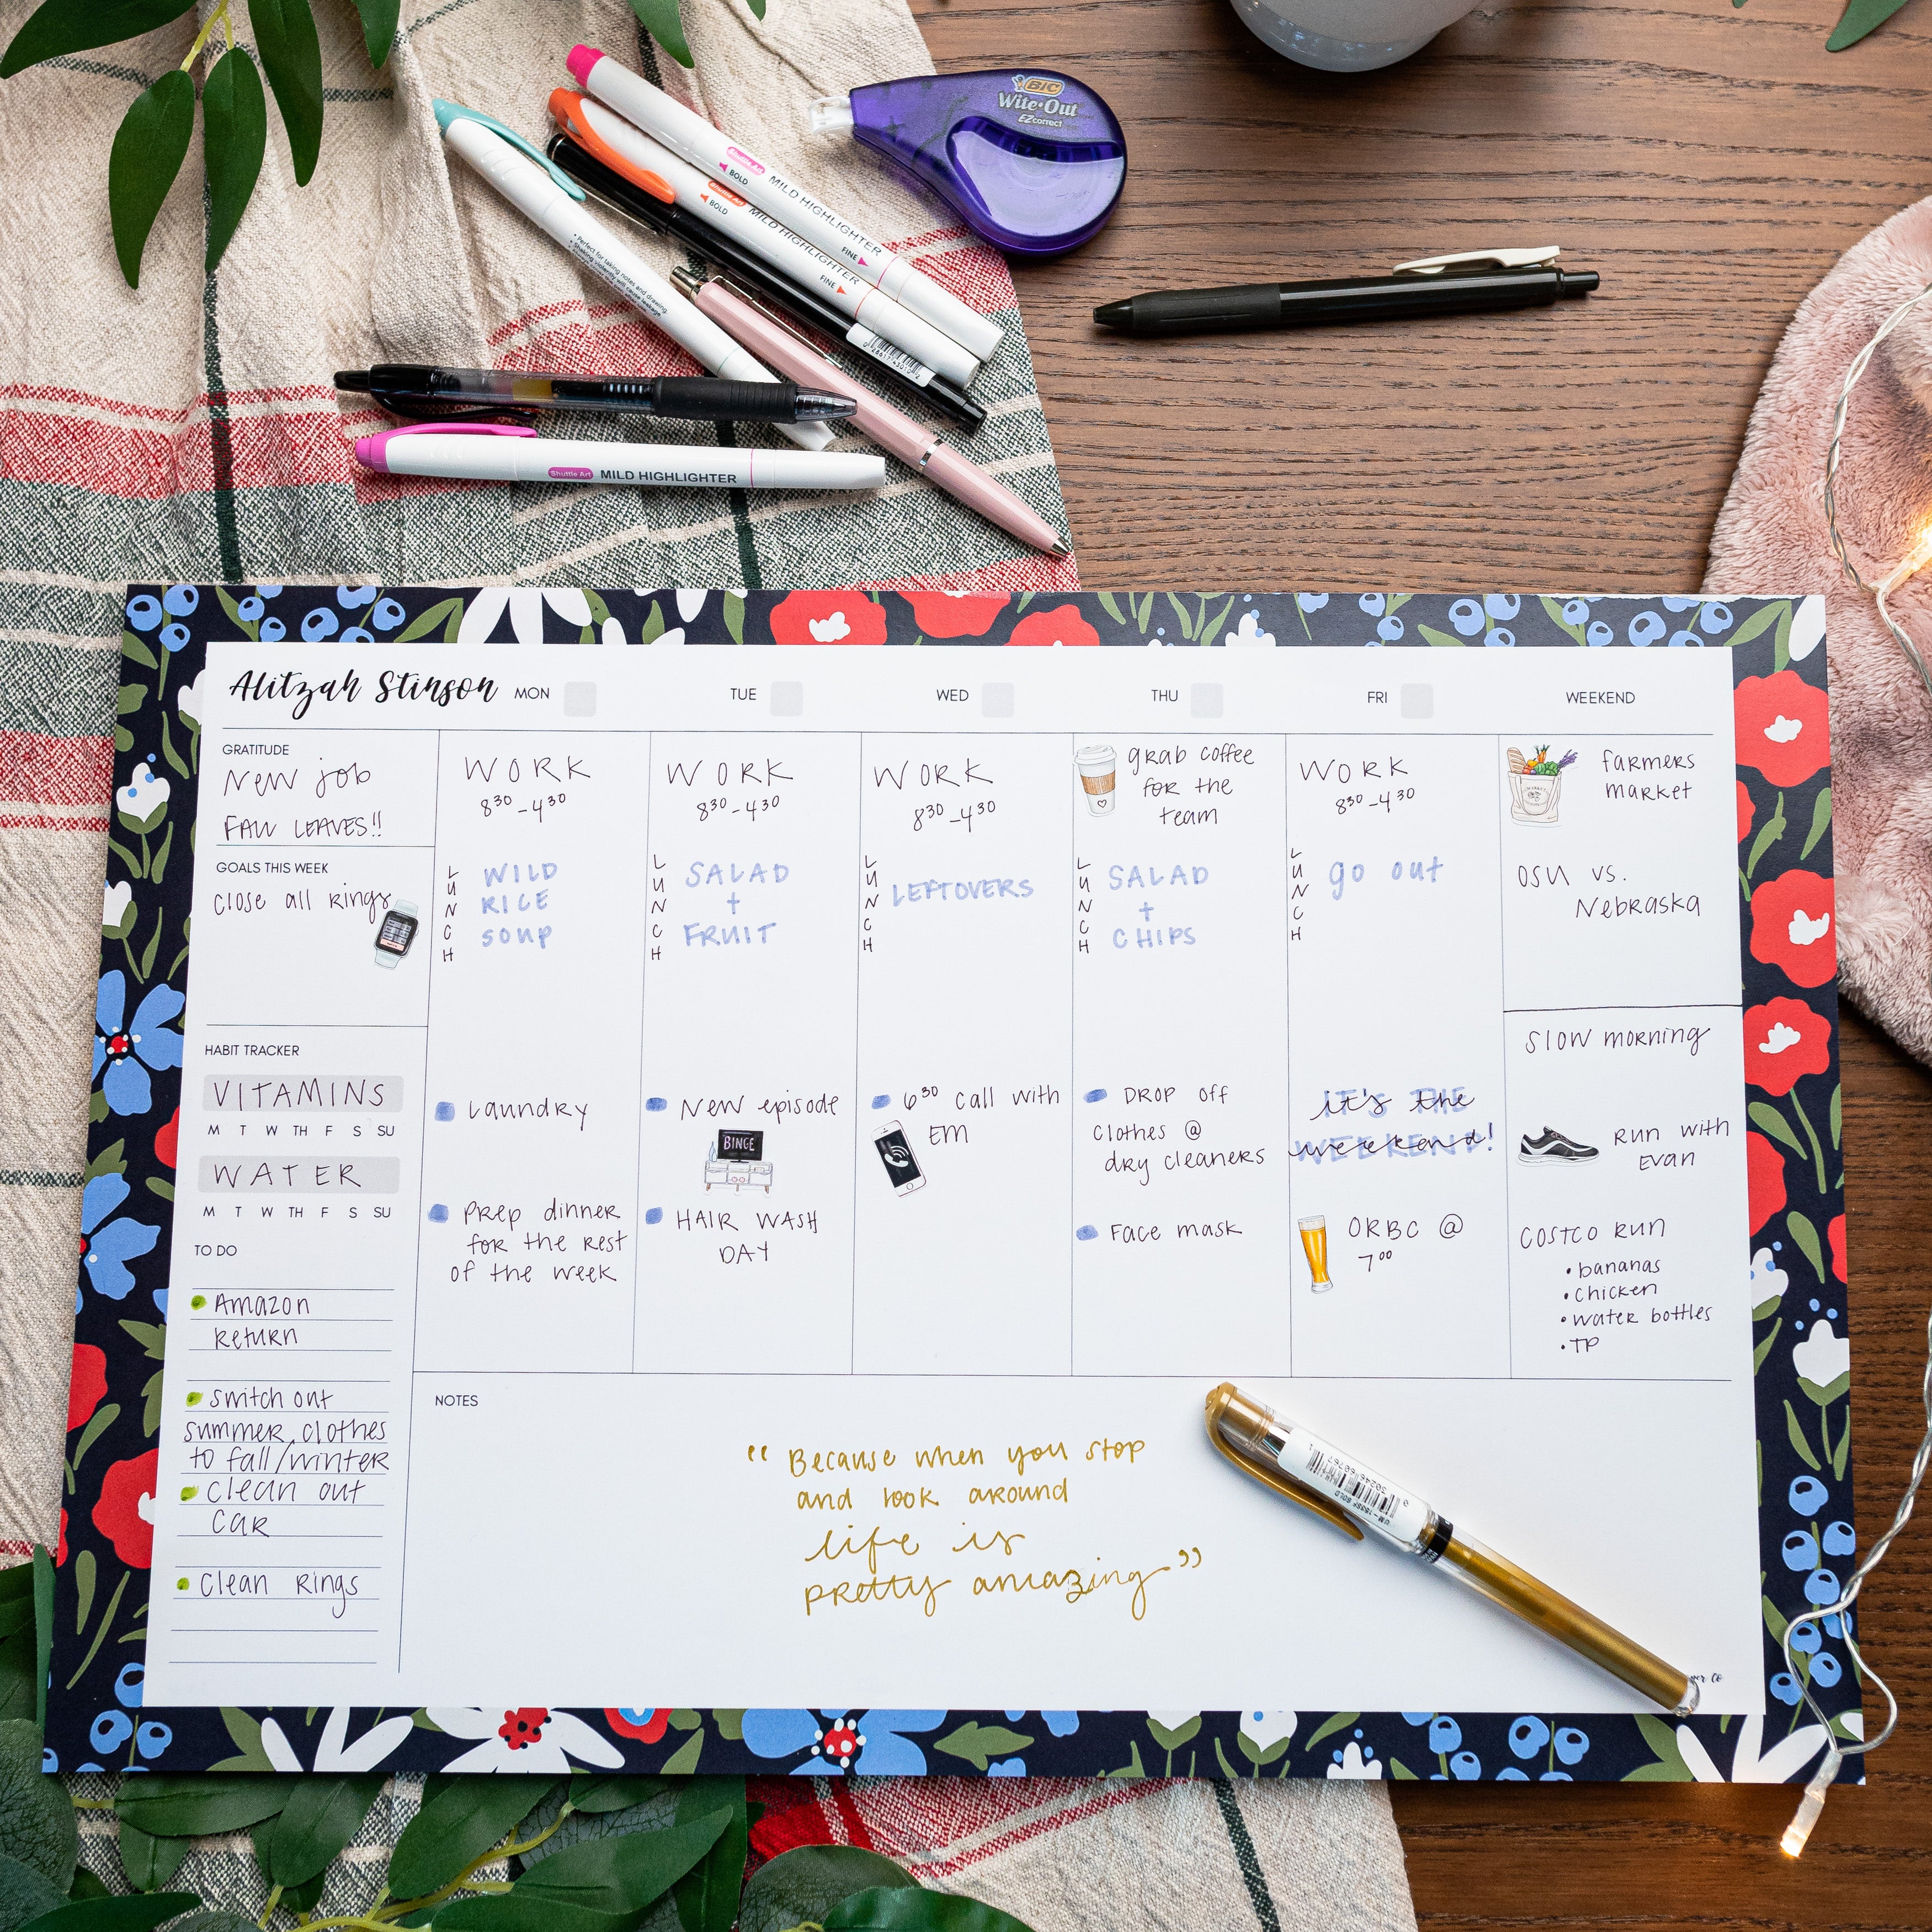 BIC
Wite·Out
EZcorrect
Shuttle Art
BOLD
MILD HIGHLIGHTER
FINE
Shuttle Art
BOLD
MILD HIGHLIGHTER
FINE
• Perfect for taking notes and drawing.
Shuttle Art MILD HIGHLIGHTER
Alitzah Stinson
MON
TUE
WED
THU
FRI
WEEKEND
GRATITUDE
New job
FALL LEAVES!!
GOALS THIS WEEK
close all rings
HABIT TRACKER
VITAMINS
M T W TH F S SU
WATER
M T W TH F S SU
TO DO
Amazon
return
switch out
summer clothes
to fall/winter
clean out
car
clean rings
WORK
8³⁰-4³⁰
LUNCH
WILD
RICE
SOUP
Laundry
Prep dinner
for the rest
of the week
WORK
8³⁰-4³⁰
LUNCH
SALAD
+
FRUIT
New episode
BINGE
HAIR WASH
DAY
WORK
8³⁰-4³⁰
LUNCH
LEFTOVERS
6³⁰ call with
EM
grab coffee
for the
team
LUNCH
SALAD
+
CHIPS
DROP off
clothes @
dry cleaners
Face mask
WORK
8³⁰-4³⁰
LUNCH
go out
it's the
weekend!
ORBC @
7⁰⁰
farmers
market
OSU vs.
Nebraska
slow morning
run with
Evan
COSTCO run
• bananas
• chicken
• water bottles
• TP
NOTES
“Because when you stop
and look around
life is
pretty amazing”